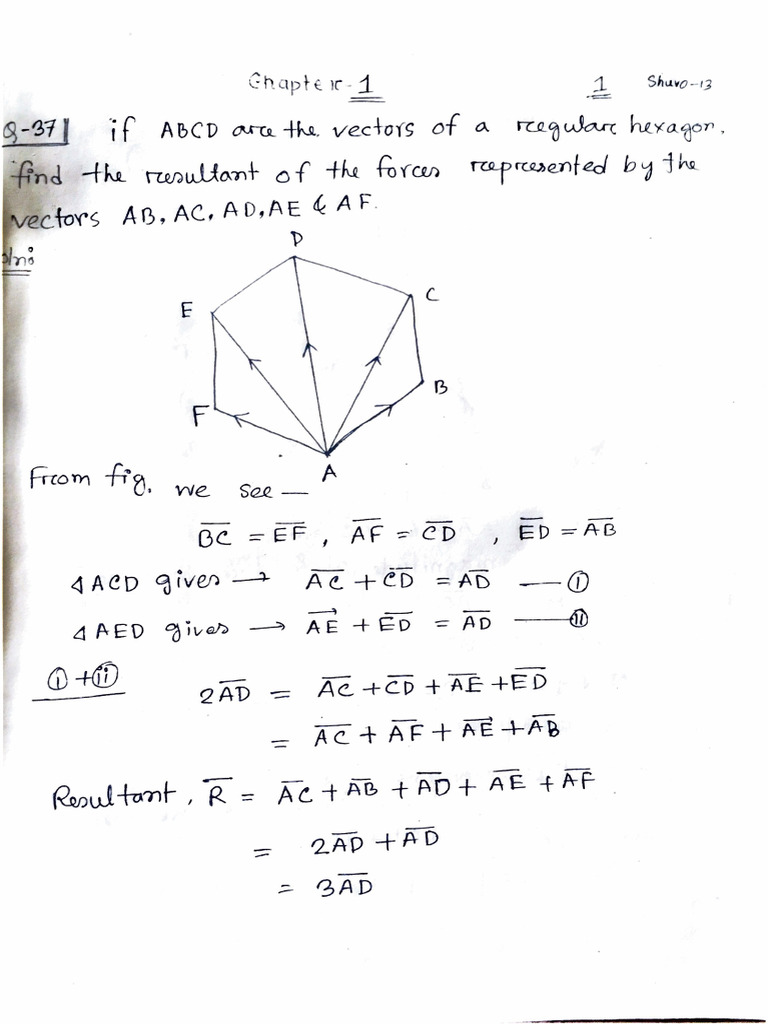 Chapter-1 1 Shuvo-13
Q-37 if ABCD are the vectors of a regular hexagon,
find the resultant of the forces represented by the
vectors AB, AC, AD, AE & AF.
D
E
C
B
F
A
From fig. we see —
B̅C̅ = E̅F̅, A̅F̅ = C̅D̅, E̅D̅ = A̅B̅
∆ACD gives → A̅C̅ + C̅D̅ = AD — (i)
∆AED gives → A͞E + E̅D̅ = A̅D̅ — (ii)
(i) + (ii) 2A̅D̅ = A̅C̅ + C̅D̅ + A̅E̅ + E̅D̅
= A̅C̅ + A̅F̅ + A̅E̅ + A̅B̅
Resultant, R̅ = A̅C̅ + A̅B̅ + A̅D̅ + A̅E̅ + A̅F̅
= 2A̅D̅ + A̅D̅
= 3A̅D̅